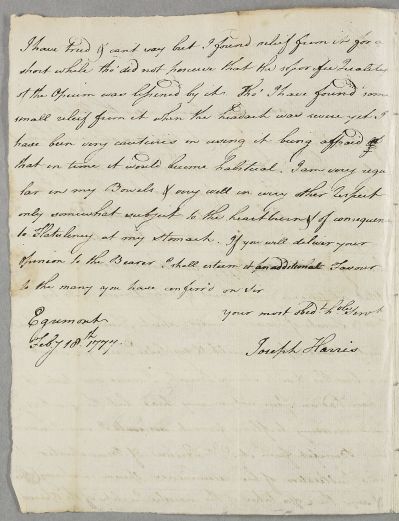 I have tried & cant say but I found relief from it for a
short while tho did not perceive that the
of the Opium was lessened by it. Tho' I have found some
small relief from it when the headach was severe yet I
have been very cautious in using it being affraid of
that in time it would become habitual. I am very regu
lar in my Bowels & very well in every other respect
only somewhat subject to the heartburn & of consequence
to Flatulency at my stomach. If you will deliver your
Opinion to the Bearer I shall esteem it an additional Favour
to the many you have conferr'd on Sir
your most Obedt hble Servt
Egremont
Feby 18th 1777.
Joseph Harris